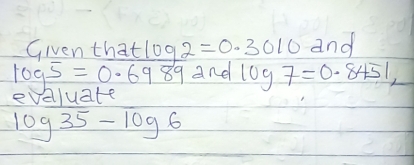 Given that log2 = 0.3010 and
log5 = 0.6989 and log 7 = 0.8451,
evaluate
log 35 - log 6